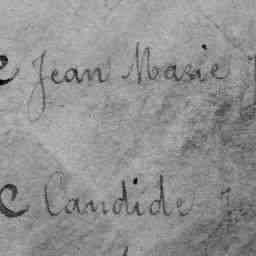 Jean Marie
Candide